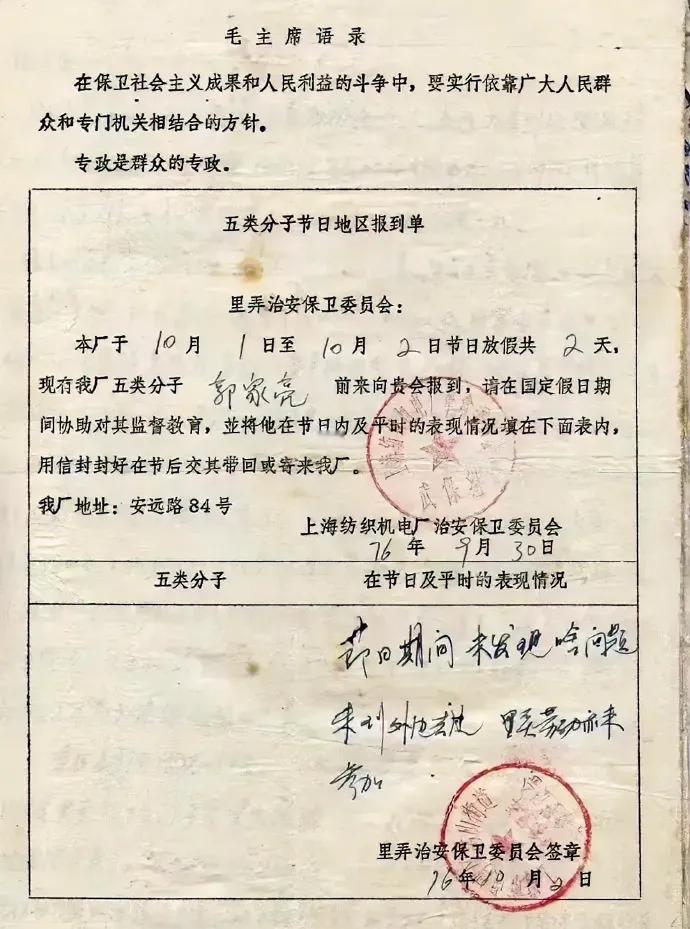 毛主席语录
在保卫社会主义成果和人民利益的斗争中，要实行依靠广大人民群
众和专门机关相结合的方针。
专政是群众的专政。
五类分子节日地区报到单
里弄治安保卫委员会：
本厂于 10月 1日至 10月 2日节日放假共 2天，
现有我厂五类分子 郭家亮 前来向贵会报到，请在国定假日期
间协助对其监督教育，並将他在节日内及平时的表现情况填在下面表内，
用信封封好在节后交其带回或寄来我厂。
我厂地址：安远路84号
上海纺织机电厂治安保卫委员会
76年 9月 30日
五类分子 在节日及平时的表现情况
节日期间 未发现啥问题
未到外边去 里弄劳动亦未
参加
里弄治安保卫委员会签章
76年 10月 2日